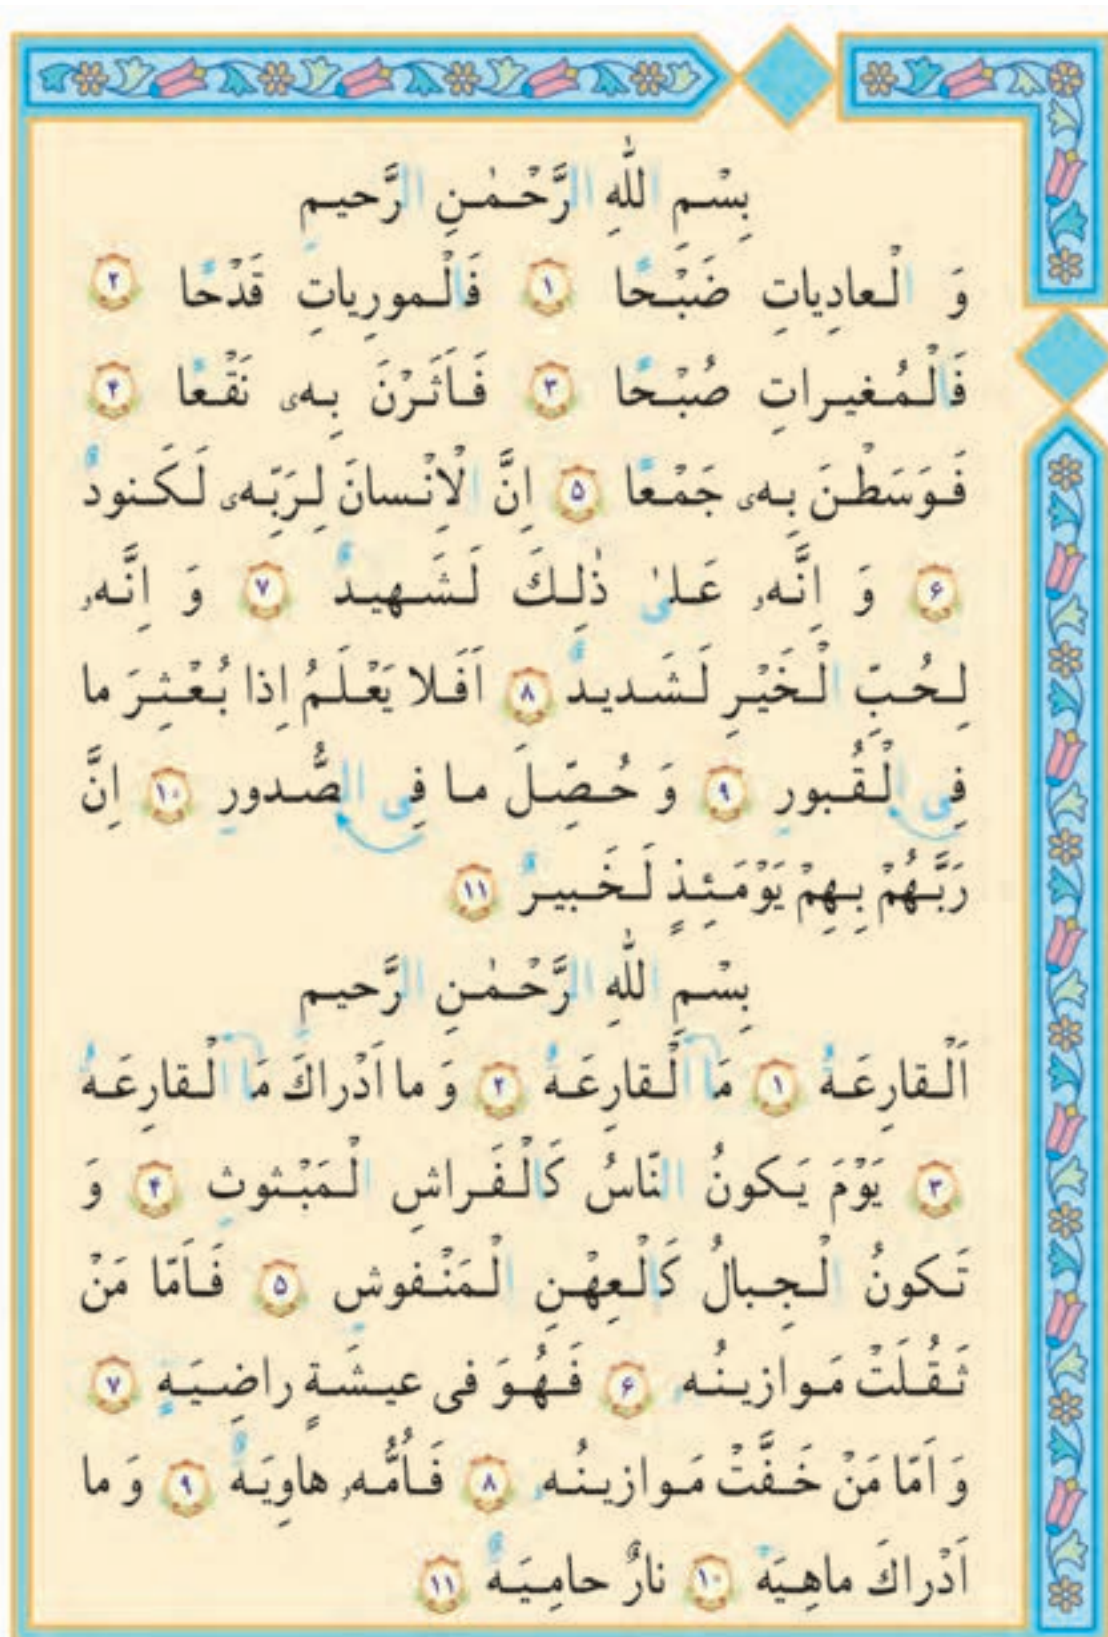 بِسْمِ اللّٰهِ الرَّحْمٰنِ الرَّحیمِ
وَ الْعادِیاتِ ضَبْحًا ۱ فَالْمورِیاتِ قَدْحًا ۲
فَالْمُغیراتِ صُبْحًا ۳ فَاَثَرْنَ بِهی نَقْعًا ۴
فَوَسَطْنَ بِهی جَمْعًا ۵ اِنَّ الْاِنْسانَ لِرَبِّهی لَکَنودٌ
۶ وَ اِنَّهُ، عَلیٰ ذٰلِکَ لَشَهیدٌ ۷ وَ اِنَّهُ،
لِحُبِّ الْخَیْرِ لَشَدیدٌ ۸ اَفَلا یَعْلَمُ اِذا بُعْثِرَ ما
فِی الْقُبورِ ۹ وَ حُصِّلَ ما فِی الصُّدورِ ۱۰ اِنَّ
رَبَّهُمْ بِهِمْ یَوْمَئِذٍ لَخَبیرٌ ۱۱
بِسْمِ اللّٰهِ الرَّحْمٰنِ الرَّحیمِ
اَلْقارِعَةُ ۱ مَا الْقارِعَةُ ۲ وَ ما اَدْراکَ مَا الْقارِعَةُ
۳ یَوْمَ یَکونُ النّاسُ کَالْفَراشِ الْمَبْثوثِ ۴ وَ
تَکونُ الْجِبالُ کَالْعِهْنِ الْمَنْفوشِ ۵ فَاَمّا مَنْ
ثَقُلَتْ مَوازینُهُ، ۶ فَهُوَ فی عیشَةٍ راضِیَةٍ ۷
وَ اَمّا مَنْ خَفَّتْ مَوازینُهُ، ۸ فَاُمُّهُ، هاوِیَةٌ ۹ وَ ما
اَدْراکَ ماهِیَهْ ۱۰ نارٌ حامِیَةٌ ۱۱